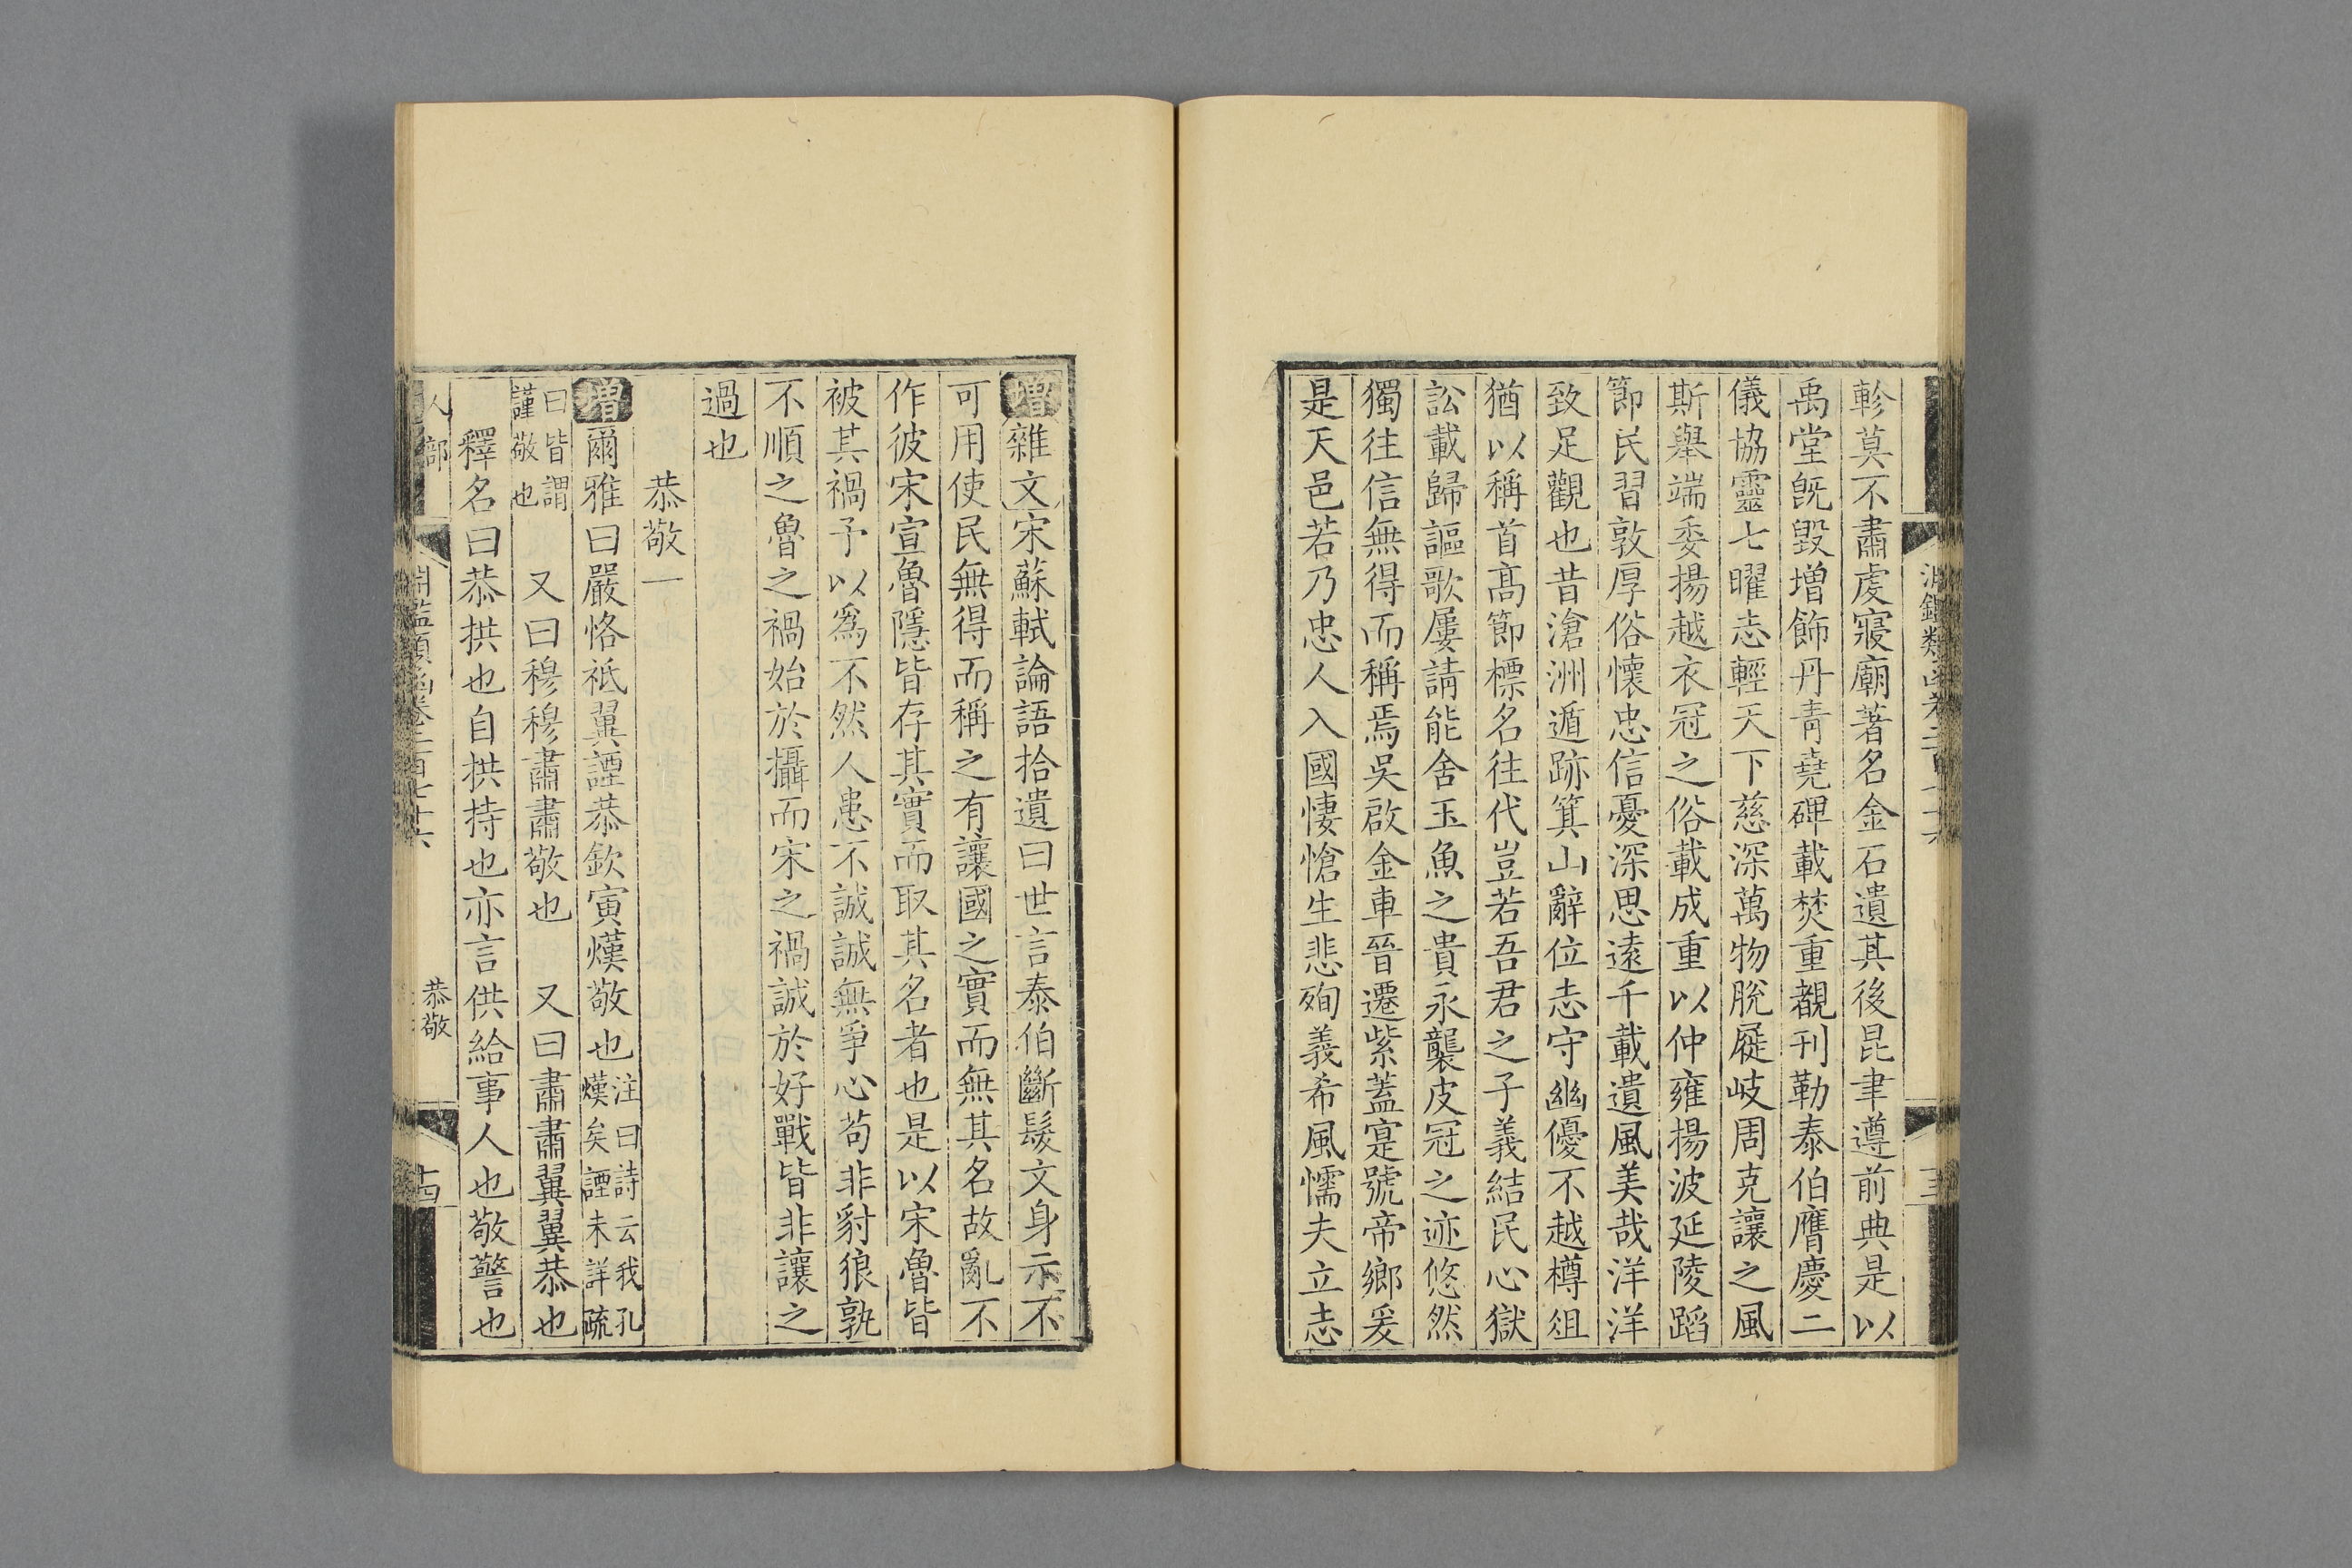 軫莫不肅虔寢廟著名金石遺其後昆聿遵前典是以
禹堂旣毀增飾丹青堯碑載焚重覩刊勒泰伯膺慶二
儀協靈七曜志輕天下慈深萬物脫屣岐周克讓之風
斯舉端委揚越衣冠之俗載成重以仲雍揚波延陵蹈
節民習敦厚俗懷忠信憂深思遠千載遺風美哉洋洋
致足觀也昔滄洲遁跡箕山辭位志守幽優不越樽俎
猶以稱首高節標名往代豈若吾君之子義結民心獄
訟載歸謳歌屢請能舍玉魚之貴永襲皮冠之迹悠然
獨往信無得而稱焉吳啟金車晉遷紫蓋寔號帝鄉爰
是天邑若乃忠人入國悽愴生悲殉義希風懦夫立志
增雜文宋蘇軾論語拾遺曰世言泰伯斷髮文身示不
可用使民無得而稱之有讓國之實而無其名故亂不
作彼宋宣魯隱皆存其實而取其名者也是以宋魯皆
被其禍予以爲不然人患不誠誠無爭心苟非豺狼孰
不順之魯之禍始於攝而宋之禍誠於好戰皆非讓之
過也
恭敬一
增爾雅曰嚴恪祗翼諲恭欽寅熯敬也注曰詩云我孔
熯矣諲未詳疏
曰皆謂
謹敬也
又曰穆穆肅肅敬也 又曰肅肅翼翼恭也
釋名曰恭拱也自拱持也亦言供給事人也敬警也
人部
淵鑑類函卷二百七十六
恭敬
十四